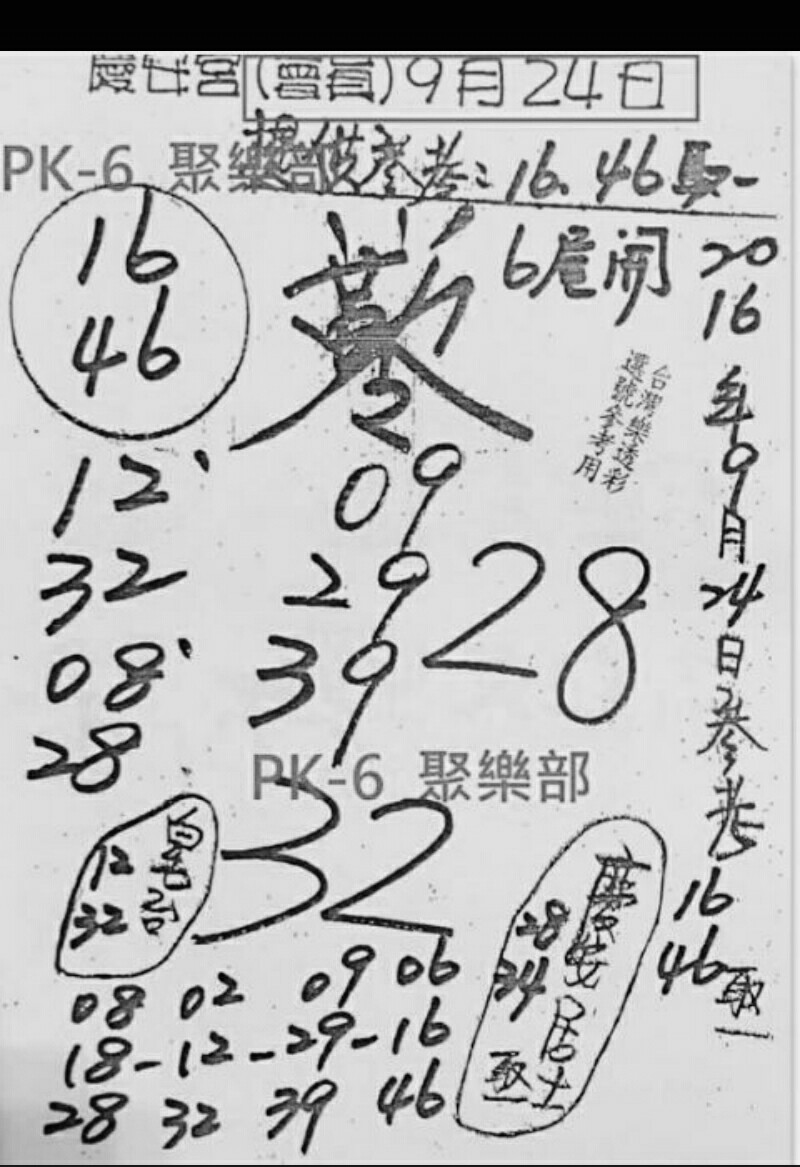 慶安宮(會員)9月24日
PK-6 聚樂部
提供參考:16.46取一
16
46
6尾開
2016年9月24日參考
16
46取一
台灣樂透彩
選號參考用
2
12
32
08
28
09
29
39
28
PK-6 聚樂部
32
12
32
慶安居士
28
34
取一
08 02 09 06
18-12-29-16
28 32 39 46